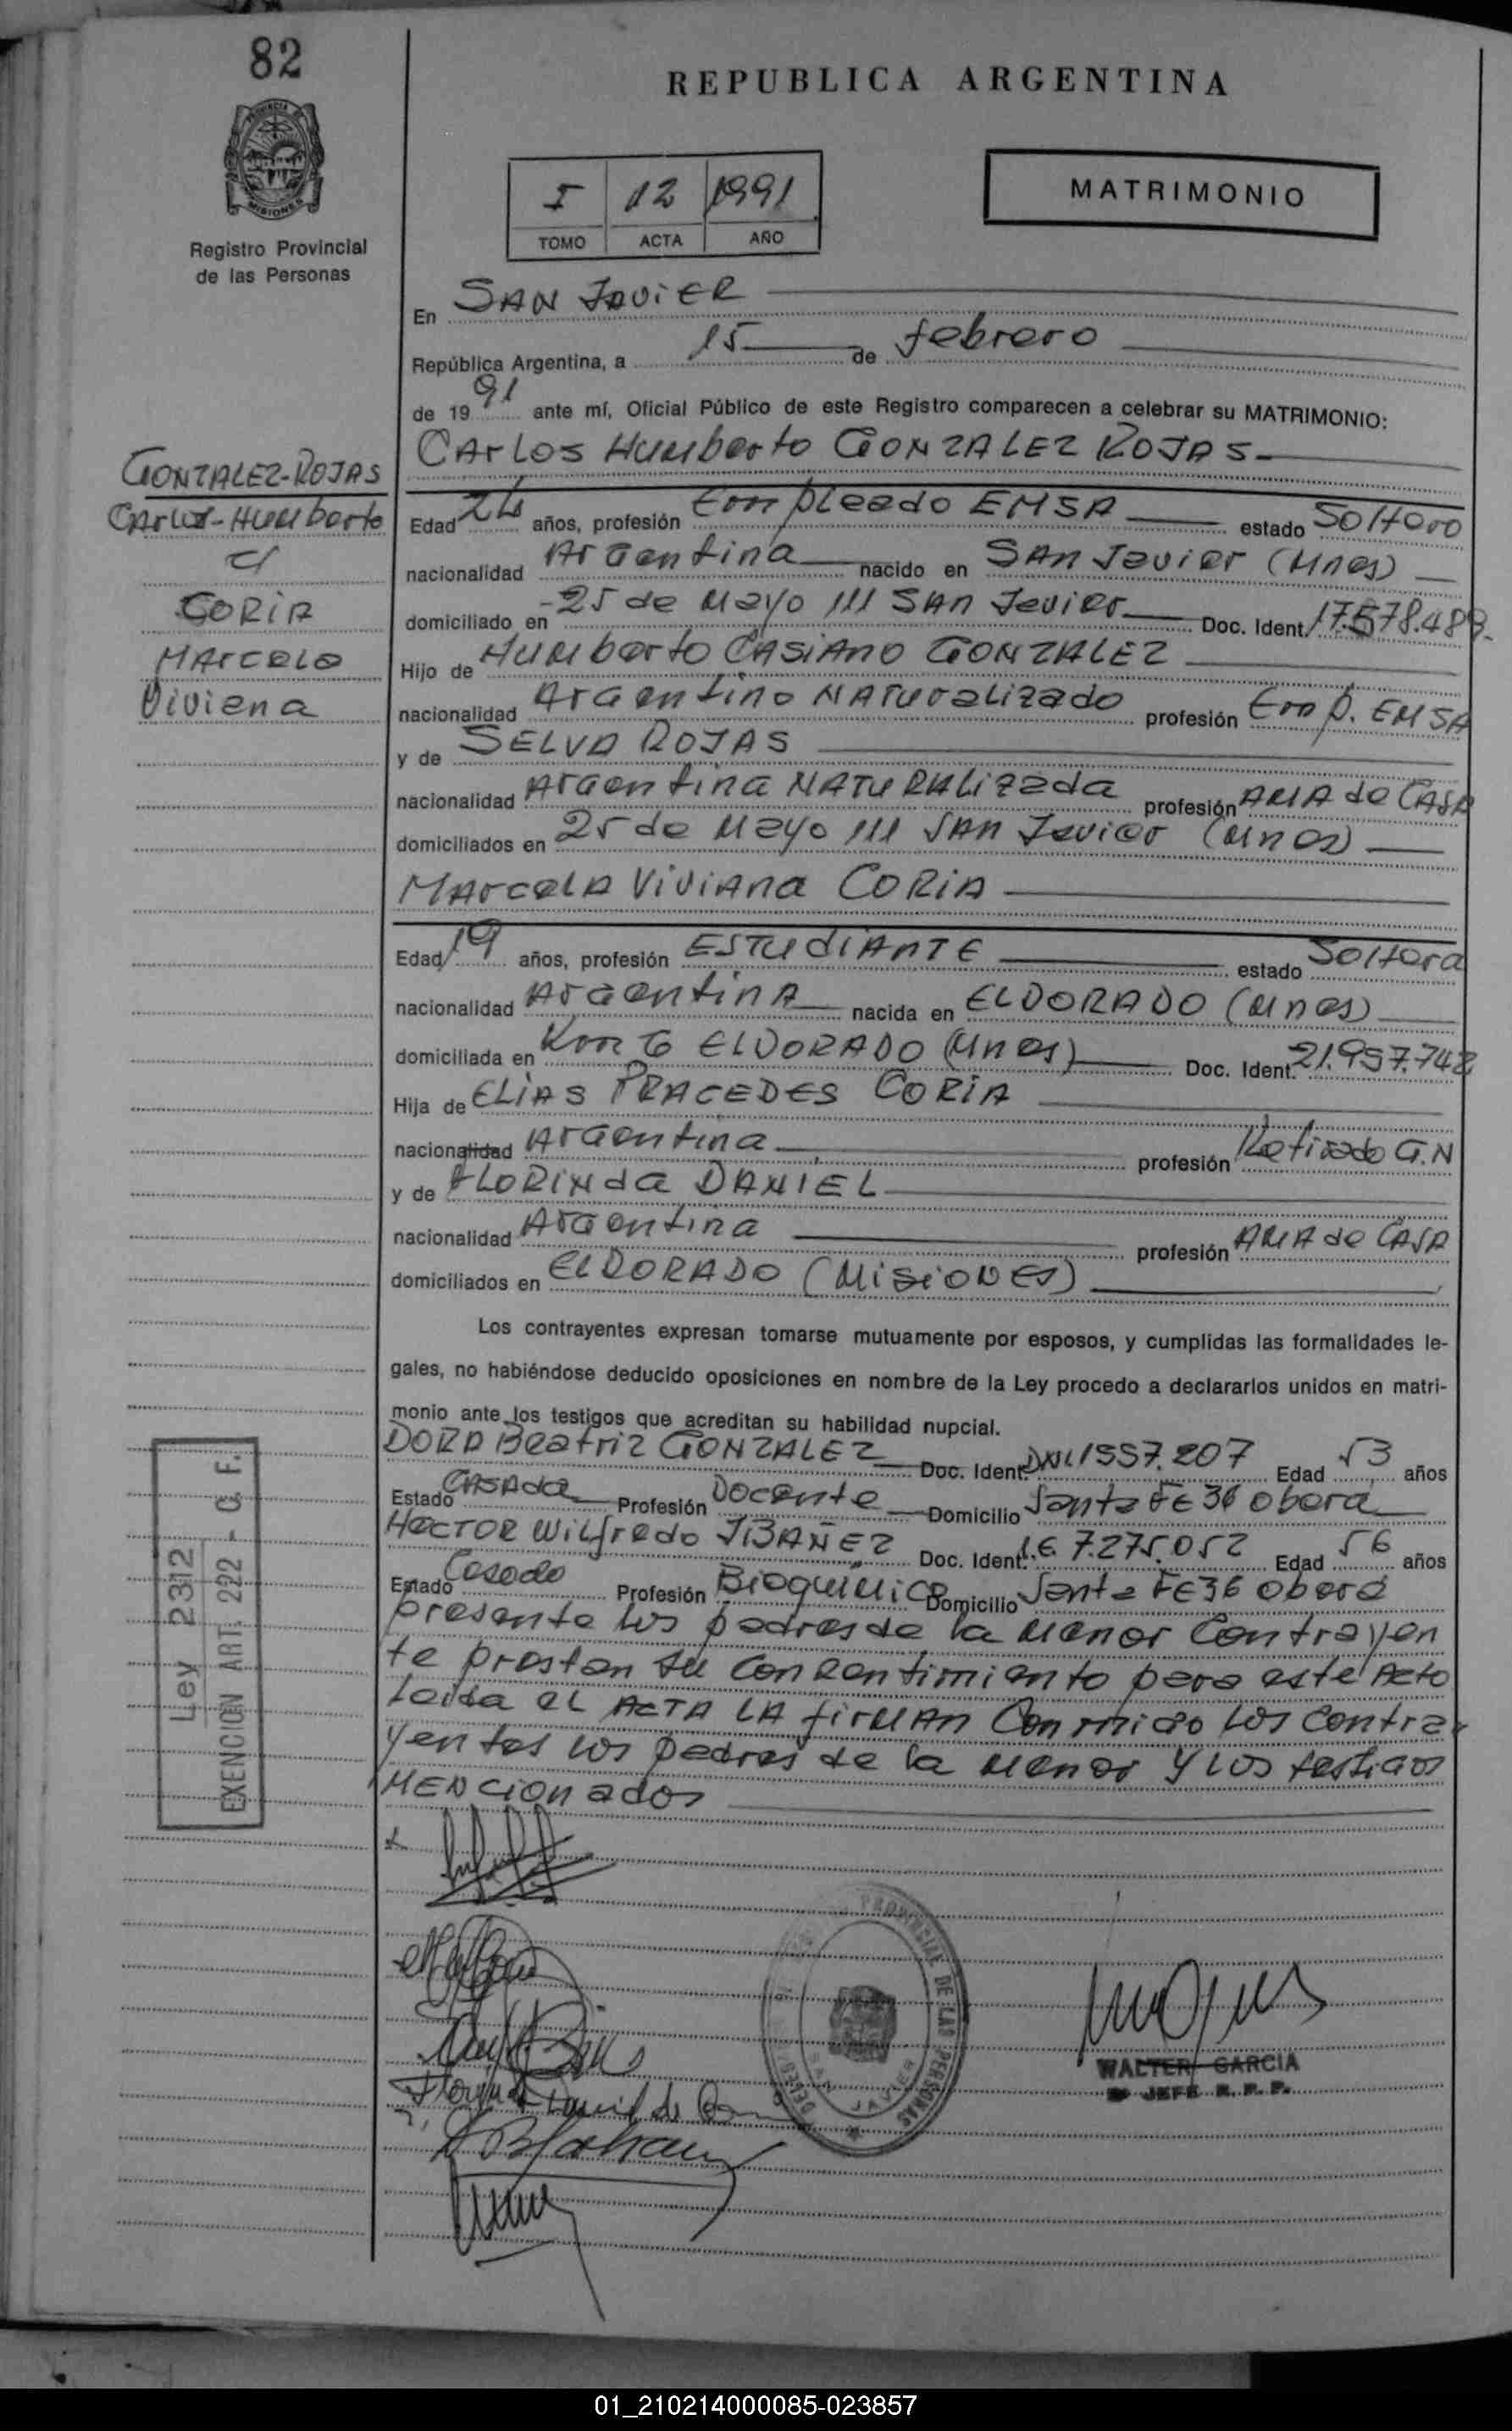 82
REPUBLICA ARGENTINA
PROVINCIA
MISIONES
Registro Provincial
de las Personas
I 12 1991
TOMO ACTA AÑO
MATRIMONIO
En SAN JAVIER
República Argentina, a 15 de febrero
de 1991 ante mí, Oficial Público de este Registro comparecen a celebrar su MATRIMONIO:
CARLOS HUMBERTO GONZALEZ ROJAS
GONZALEZ-ROJAS
CARLOS-HUMBERTO
c/
CORIA
MARCELA
Viviana
Edad 24 años, profesión Empleado EMSA estado Soltero
nacionalidad Argentina nacido en SAN Javier (Mnes)
domiciliado en 25 de Mayo 111 SAN Javier Doc. Ident. 17.578.489
Hijo de Humberto CASIANO GONZALEZ
nacionalidad Argentino NATUralizado profesión Emp. EMSA
y de SELVA ROJAS
nacionalidad Argentina NATURALizada profesión AMA de CASA
domiciliados en 25 de Mayo 111 SAN Javier (Mnes)
MArcelA ViViAna CORIA
Edad 19 años, profesión ESTUdiANTE estado Soltera
nacionalidad ArgentinA nacida en ELDORADO (Mnes)
domiciliada en Km 6 ELDORADO (Mnes) Doc. Ident. 21.957.742
Hija de ELIAS PRACEDES CORIA
nacionalidad Argentina profesión Retirado G.N
y de FLORINda DANIEL
nacionalidad Argentina profesión AMA de CASA
domiciliados en ELDORADO (MisioNES)
Los contrayentes expresan tomarse mutuamente por esposos, y cumplidas las formalidades le-
gales, no habiéndose deducido oposiciones en nombre de la Ley procedo a declararlos unidos en matri-
monio ante los testigos que acreditan su habilidad nupcial.
DORA Beatriz GONZALEZ Doc. Ident. DNI.1557.207 Edad 53 años
Estado CASAda Profesión Docente Domicilio Santa FE 36 obera
HECTOR Wilfredo IBAÑEZ Doc. Ident. L.E 7.275.052 Edad 56 años
Estado Casado Profesión Bioquimico Domicilio Santa FE 36 oberá
presente los padres de la menor Contrayen
te prestan su Consentimiento para este Acto
Leida el ACTA LA firMAn Conmigo los Contra-
yentes los padres de la menor y los testigos
MENCionados
Ley 2312
EXENCION ART. 222 - C. F.
Florinda Daniel de
PROVINCIAL DE LAS PERSONAS
SAN JAVIER
WALTER GARCIA
JEFE R. P. P.
01_210214000085-023857